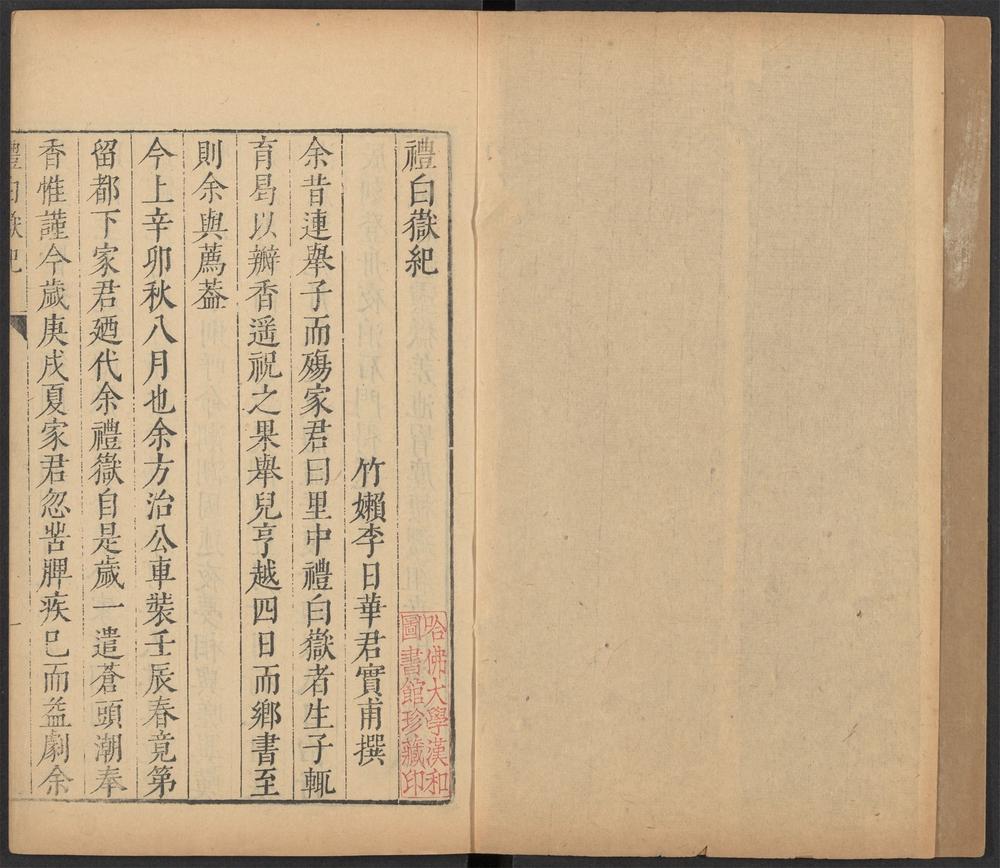 禮白嶽紀
竹嬾李日華君實甫撰
余昔連舉子而殤家君曰里中禮白嶽者生子輒
育曷以瓣香遥祝之果舉兒亨越四日而鄉書至
則余與薦葢
今上辛卯秋八月也余方治公車裝壬辰春竟第
留都下家君廼代余禮嶽自是歲一遣蒼頭潮奉
香惟謹今歲庚戌夏家君忽苦脾疾已而益劇余
禮白嶽紀
一
哈佛大學漢和
圖書館珍藏印